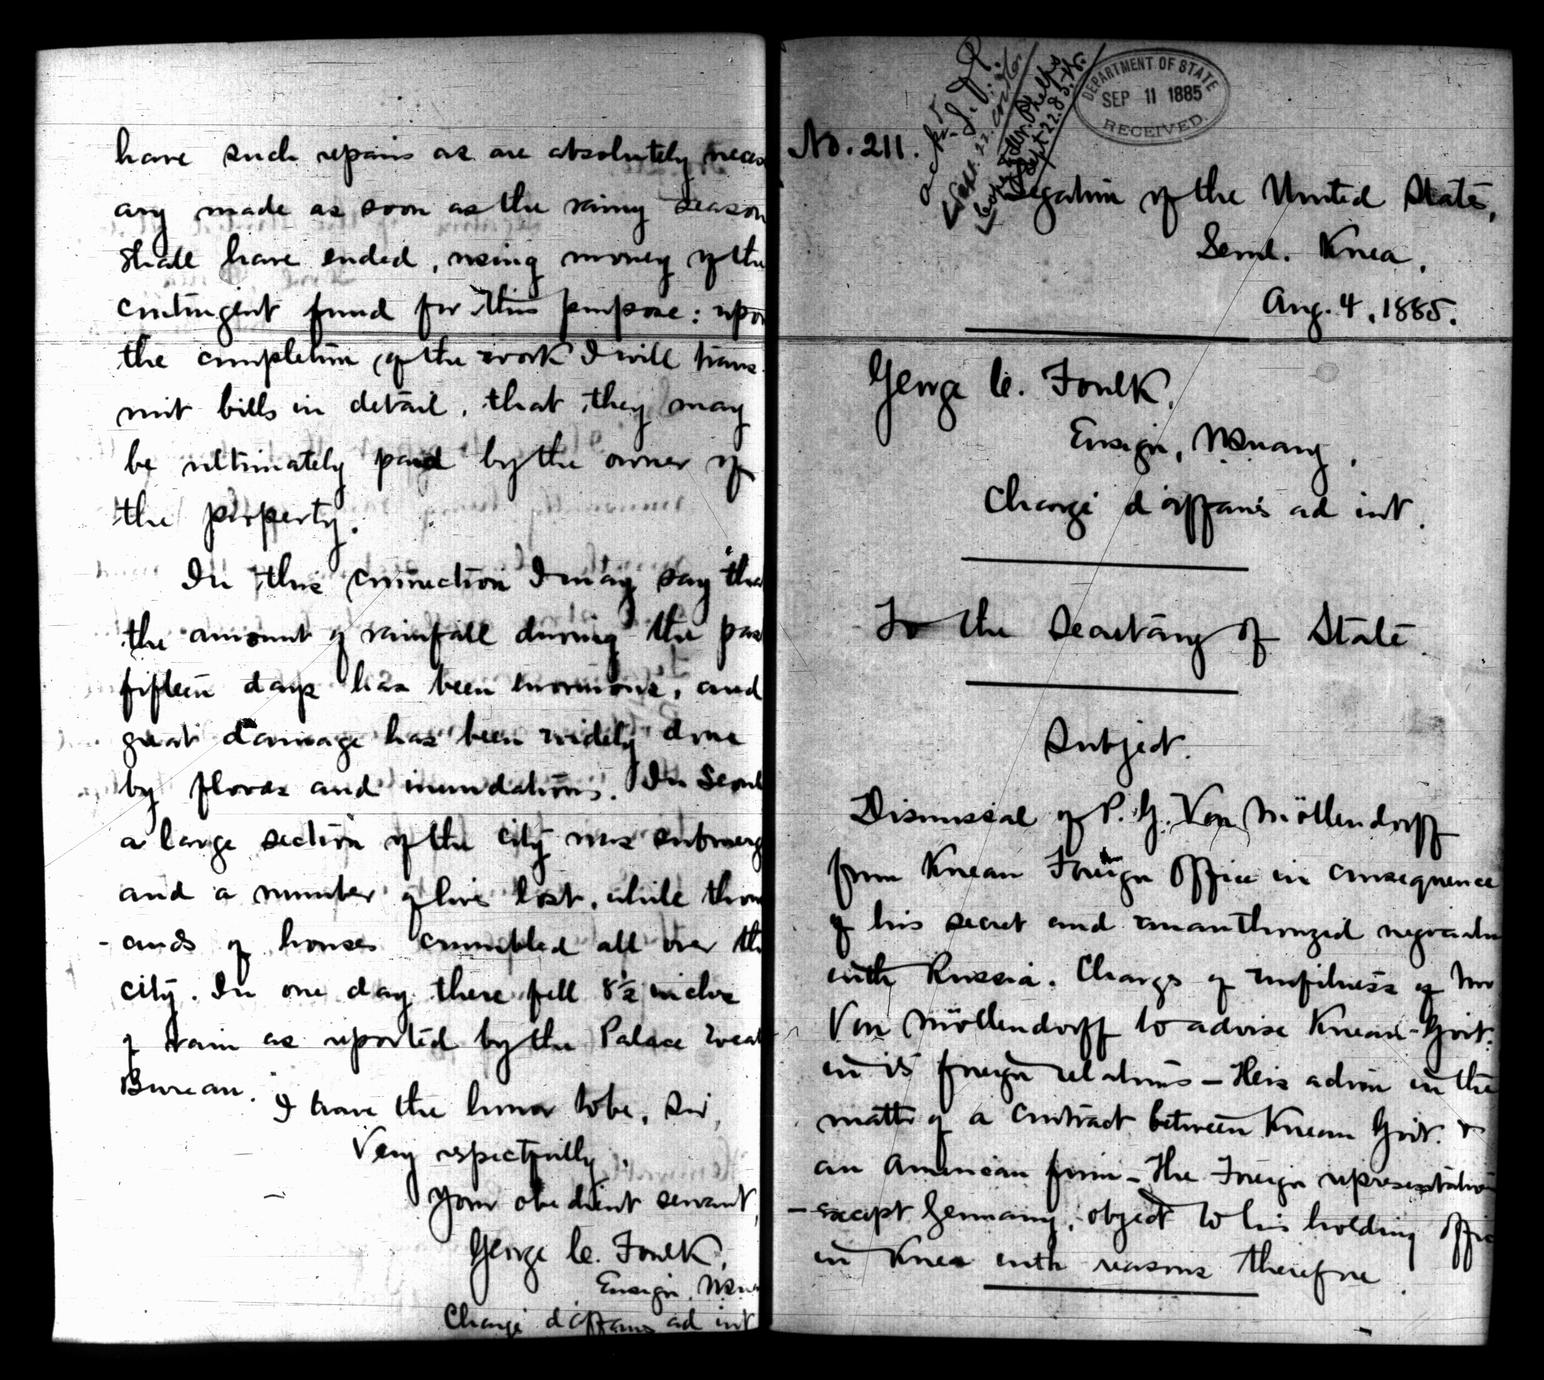 have such repairs as are absolutely necess
ary made as soon as the rainy season
shall have ended, using money of the
contingent fund for this purpose: upon
the completion of the work I will trans-
mit bills in detail, that they may
be ultimately paid by the owner of
the property.
In this connection I may say tha
the amount of rainfall during the pas
fifteen days has been enormous, and
great damage has been widely done
by floods and inundations. In Seoul
a large section of the city was submerg
and a number of lives lost, while thou
-ands of houses crumbled all over th
city. In one day there fell 8½ inches
of rain as reported by the Palace Weat
Bureau.
I have the honor to be, Sir,
Very respectfully,
Your obedient servant,
George C. Foulk,
Ensign, U.S. Nav
Chargé d'affaires ad int
DEPARTMENT OF STATE
SEP 11 1885
RECEIVED.
Sept. 22.
Phelps
Sept. 22. 85.
No. 211.
Legation of the United States,
Seoul. Korea.
Aug. 4, 1885.
George C. Foulk,
Ensign, U.S. Navy,
Chargé d'affaires ad int.
To the Secretary of State
Subject.
Dismissal of P. G. Von Möllendorff
from Korean Foreign Office in consequence
of his secret and unauthorized negociation
with Russia. Charges of unfitness of Mr
Von Möllendorff to advise Korean Govt.
in its foreign relations – His action in the
matter of a contract between Korean Govt. &
an American firm – The Foreign representatives
– except Germany, object to his holding office
in Korea with reasons therefore